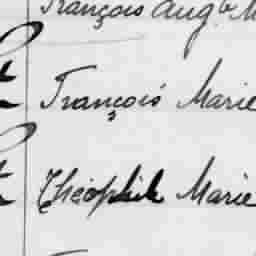 François Aug
François Marie
Théophile Marie